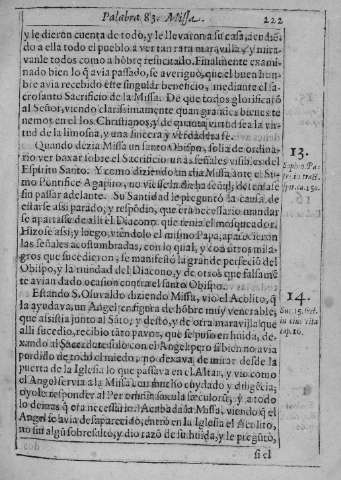 Palabra 83. Missa. 222
y le dieron cuenta de todo, y le llevaron a su casa, acudiẽ
do a ella todo el pueblo a ver tan rara maravilla, y mira-
vanle todos como a hõbre resucitado. Finalmente exami-
nado bien lo q̃ avia passado, se averiguò, que el buen hom
bre avia recebido este singular beneficio, mediante el sa-
crosanto Sacrificio de la Missa. De que todos glorificarõ
al Señor, viendo clarissimamente quan grandes bienes te
nemos en el los Christianos, y de quanta virtud sea la vir-
tud de la limosna, y una sincera y verdadera fè.
Quando dezia Missa un santo Obispo, solia de ordina-
rio ver baxar sobre el Sacrificio unas señales visibles del
Espiritu Santo. Y como diziendo un dia Missa, ante el Su-
mo Pontifice Agapito, no viesse la dicha señal, detuvose
sin passar adelante. Su Santidad le preguntò la causa, de
estarse assi parado, y respõdio, que era necessario mandar
se apartasse de alli el Diacono, que tenia el mosqueador.
Hizose assi, y luego, viendolo el mismo Papa, aparecieron
las señales acostumbradas, con lo qual, y con otros mila-
gros que sucedieron, se manifestò la grande perfeciõ del
Obispo, y la ruindad del Diacono, y de otros que falsamẽ
te avian dado ocasion contra el santo Obispo.
Estando S. Osuvaldo diziendo Missa, vio el Acolito, q̃
la ayudava, un Angel en figura de hõbre muy venerable,
que assistia junto al Sãto; y desto, y de otra maravilla que
alli sucedio, recibio tãto pavor, que se puso en huida, de-
xando al Sacerdote solo con el Angel; pero si bien no avia
perdido de todo el miedo, no dexava de mirar desde la
puerta de la Iglesia lo que passava en el Altar, y vio como
el Angel servia a la Missa con mucho cuydado y diligẽcia;
oyole responder al Per omnia sæcula sæculorũ, y a todo
lo demas q̃ era necessario. Acabada la Missa, viendo q̃ el
Angel se avia desaparecido, entrò en la Iglesia el Acolito,
no sin algũ sobresalto, y dio razõ de su huida, y le pregũtò,
si el
13.
14.
Sur. 15. Oct.